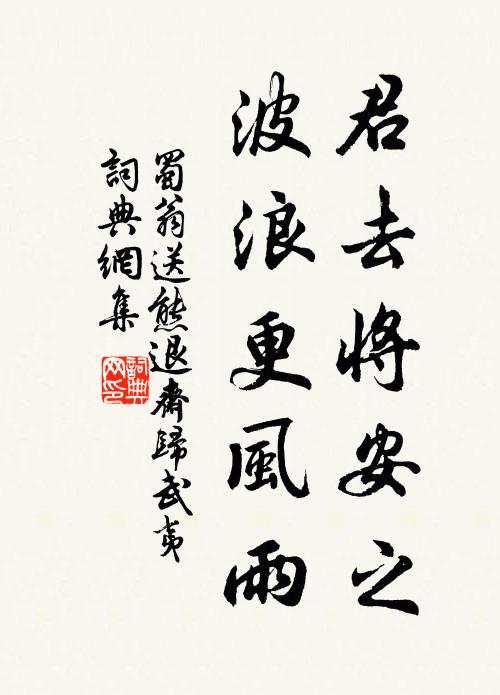 君去將安之
波浪更風雨
蜀翁送熊退齋歸武夷
詞典網集
詞典
网印